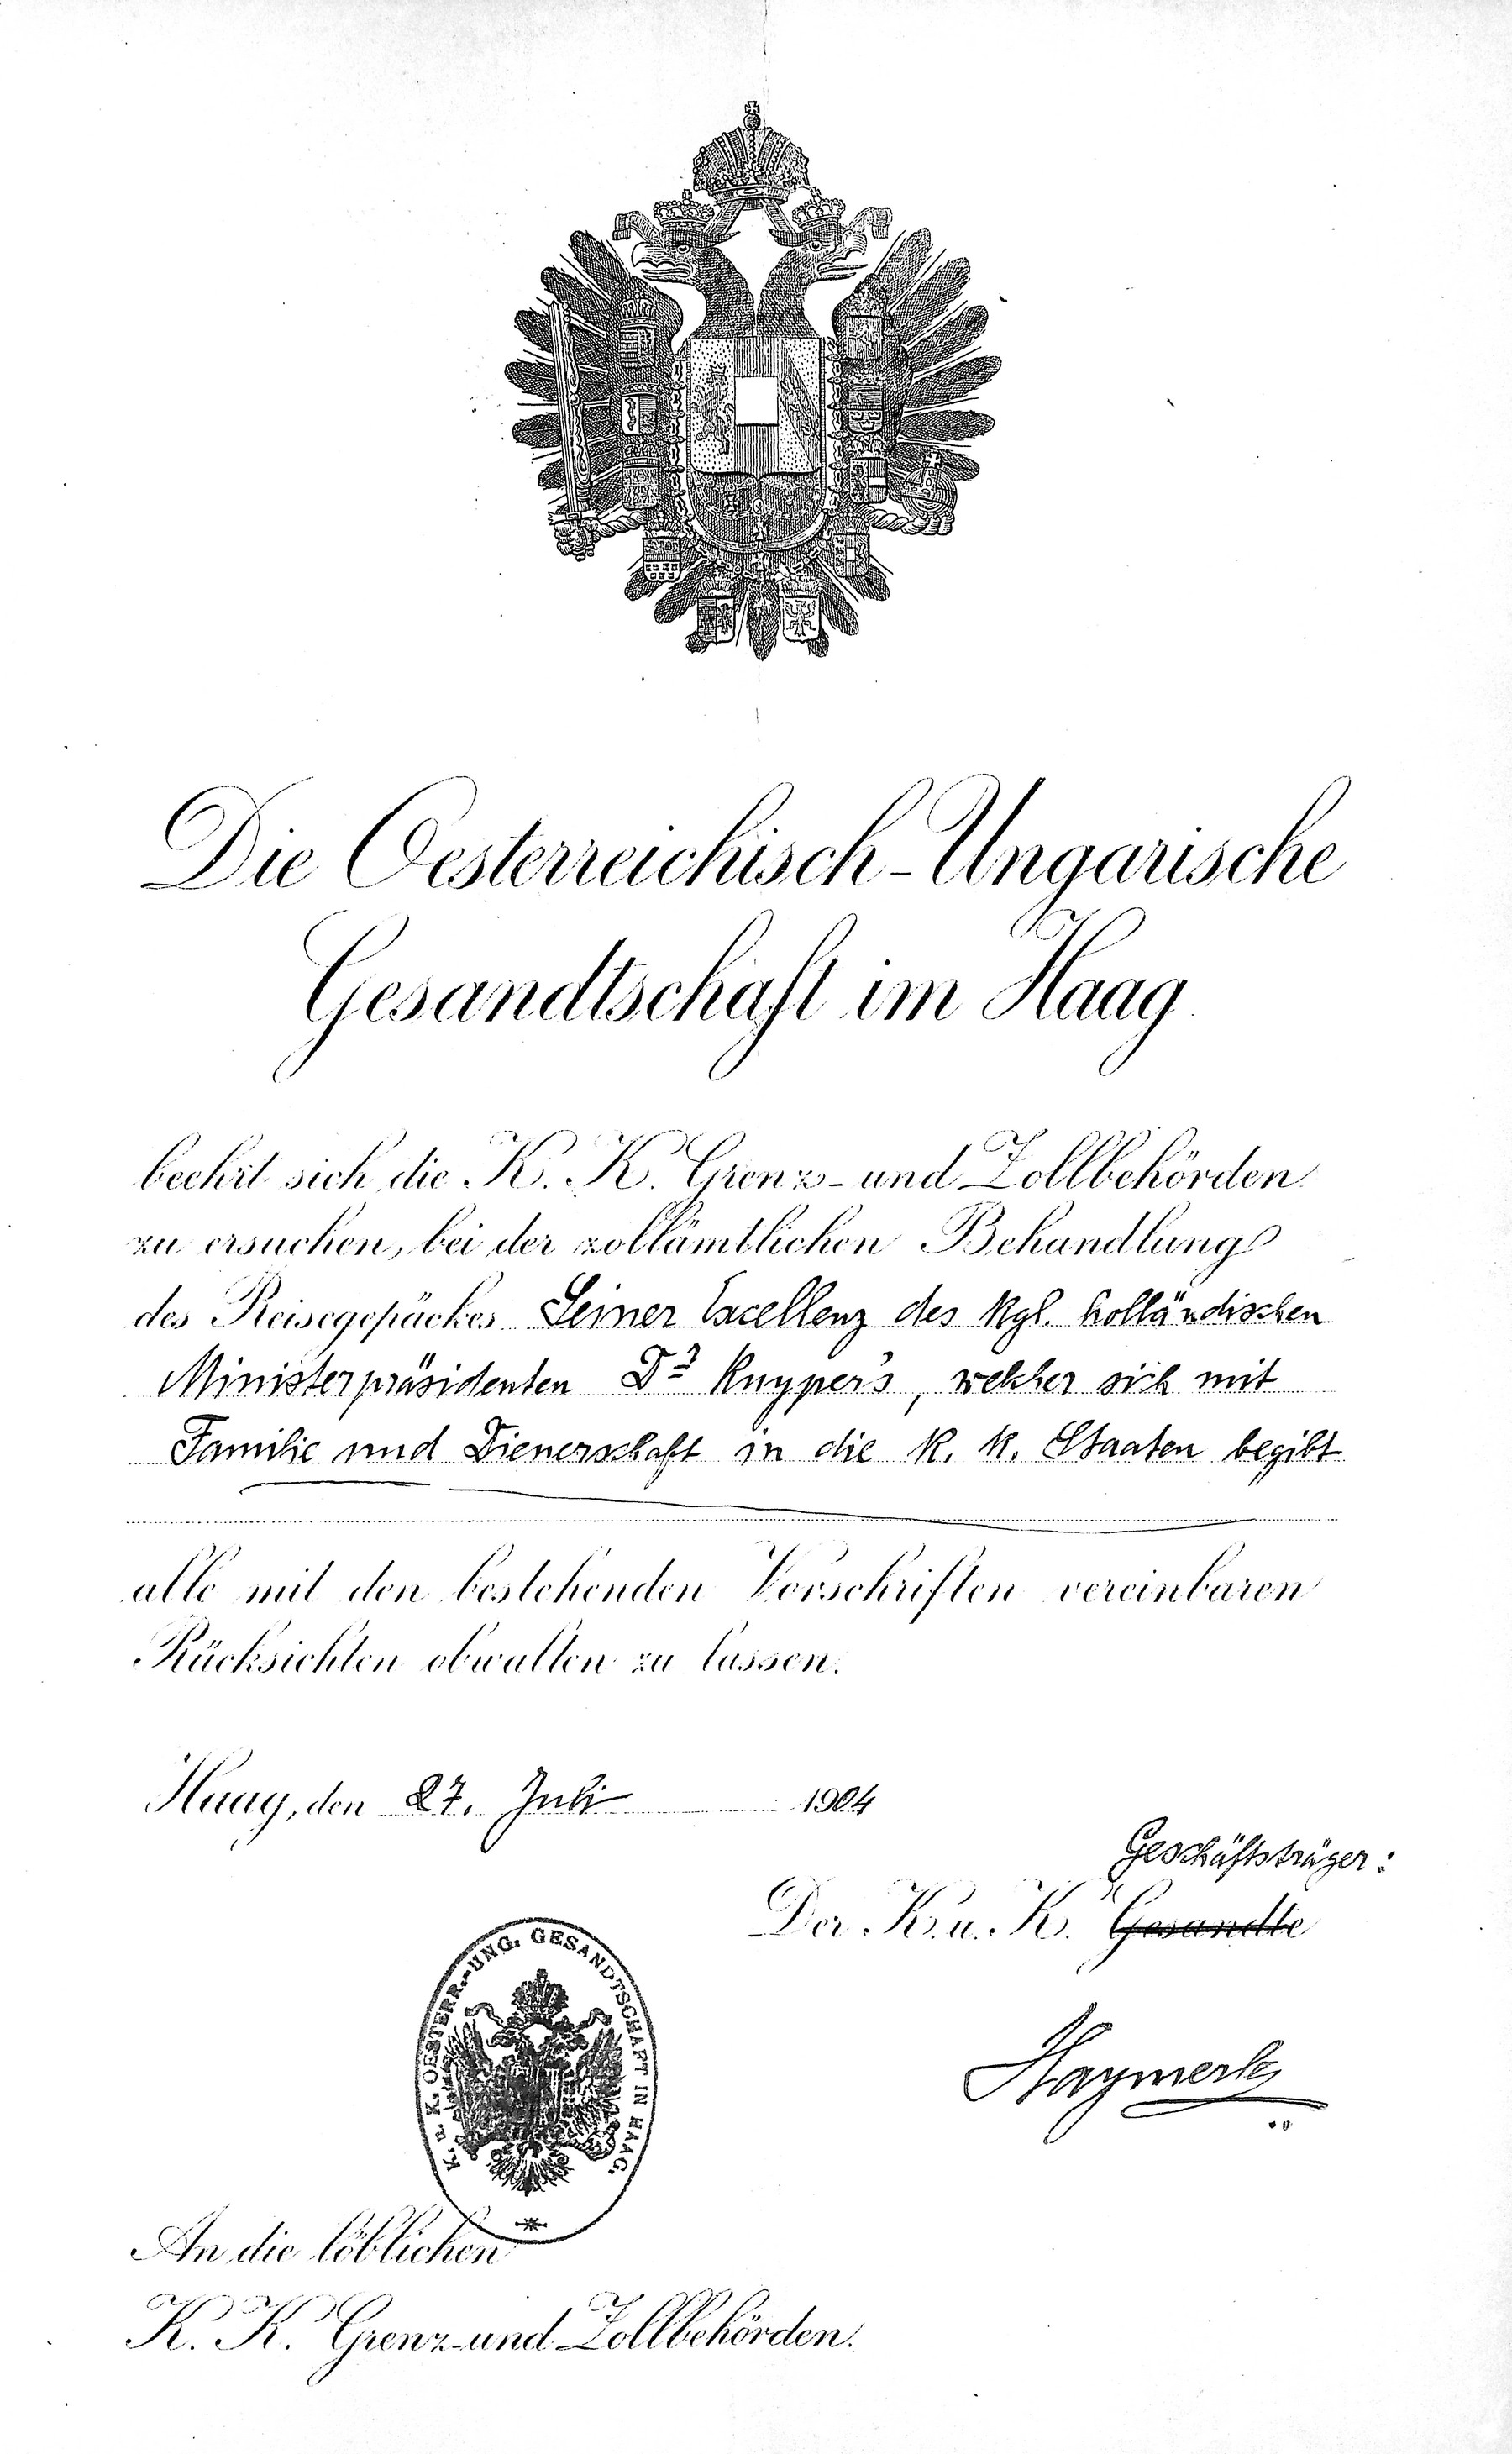 Die Oesterreichisch-Ungarische
Gesandtschaft im Haag.
beehrt sich die K. K. Grenz- und Zollbehörden
zu ersuchen, bei der zollämtlichen Behandlung
des Reisegepäckes Seiner Excellenz des kgl. holländischen
Ministerpräsidenten Dr Kuyper's, welcher sich mit
Familie und Dienerschaft in die k. k. Staaten begibt
alle mit den bestehenden Vorschriften vereinbaren
Rücksichten obwalten zu lassen.
Haag, den 27. Juli 1904
Geschäftsträger:
Der K. u. K. Gesandte
Haymerle
K. u. K. OESTERR.-UNG. GESANDTSCHAFT IN HAAG.
An die löblichen
K. K. Grenz- und Zollbehörden.